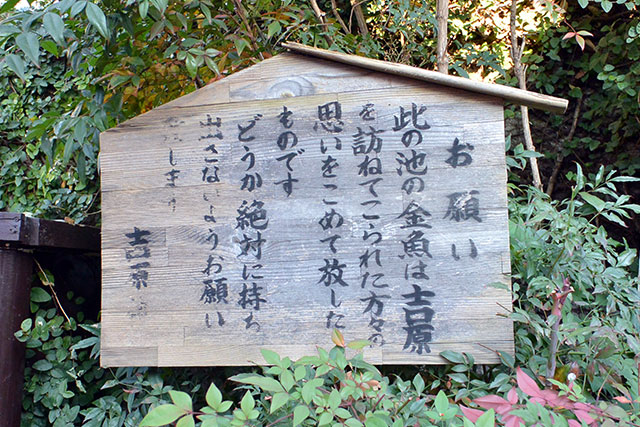 お願い
此の池の金魚は吉原
を訪ねてこられた方々の
思いをこめて放した
ものです
どうか絶対に持ち
出さないようお願い
します
吉原